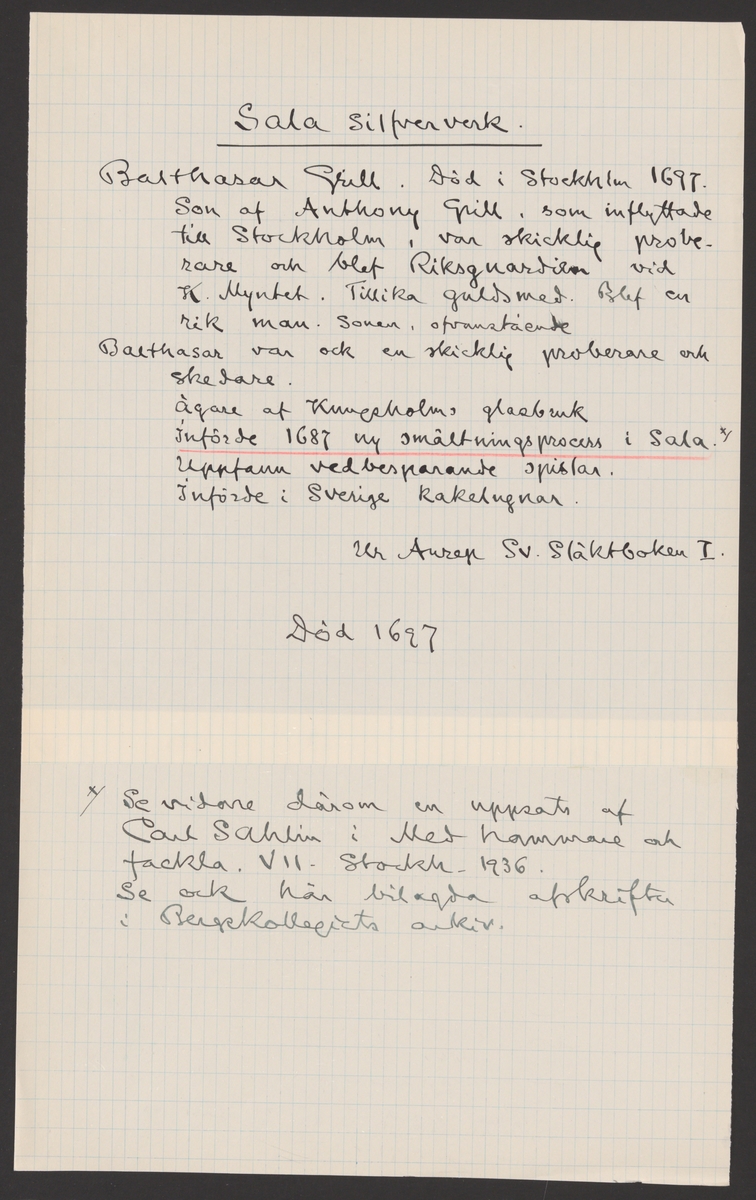 Sala Silfververk.
Balthasar Grill. Död i Stockhlm 1697.
Son af Anthony Grill, som inflyttade
till Stockholm, var skicklig probe-
rare och blef Riksguardien vid
K. Myntet. Tillika guldsmed. Blef en
rik man. Sonen, ofvanstående
Balthasar var ock en skicklig proberare och
skedare.
Ägare af Kungsholms glasbruk
Införde 1687 ny smältningsprocess i Sala. x/
Uppfann vedbesparande spislar.
Införde i Sverige kakelugnar.
Ur Anrep Sv. Släktboken I.
Död 1697
x/ Se vidare därom en uppsats af
Carl Sahlin i Med hammare och
fackla. VII - Stockh - 1936.
Se ock här bilagda afskrifter
i Bergskollegiets arkiv.